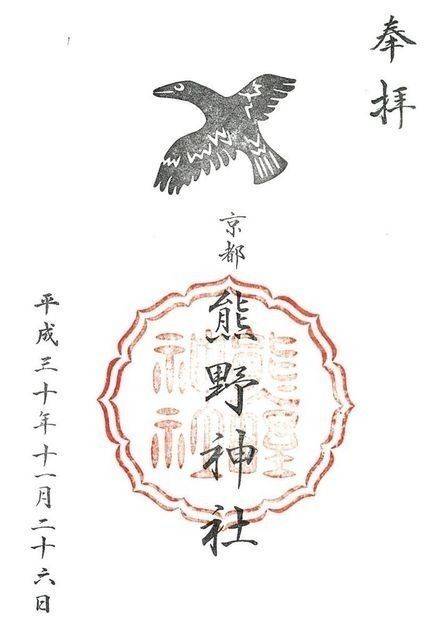 奉拝
京都
熊野神社
熊野神社
平成三十年十一月二十六日